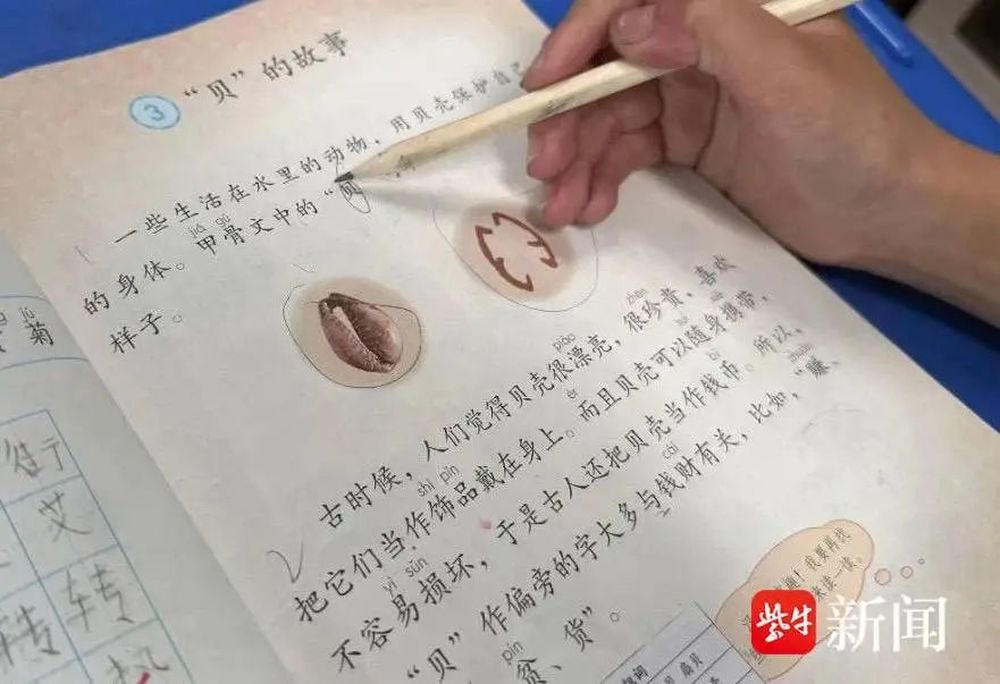 3 “贝”的故事
一些生活在水里的动物，用贝壳保护自己
jiǎ gǔ
的身体。甲骨文中的“
样子。
piào zhēn
古时候，人们觉得贝壳很漂亮，很珍贵，喜欢
shì pǐn ér suí xié
把它们当作饰品戴在身上。而且贝壳可以随身携带，
yì sǔn bì
不容易损坏，于是古人还把贝壳当作钱币。所以，
cái zhuàn
“贝”作偏旁的字大多与钱财有关，比如，“赚、
pín
贫、货”。
趣！我要再找
来读一读。
jú
菊
艾
转
转
紫牛新闻